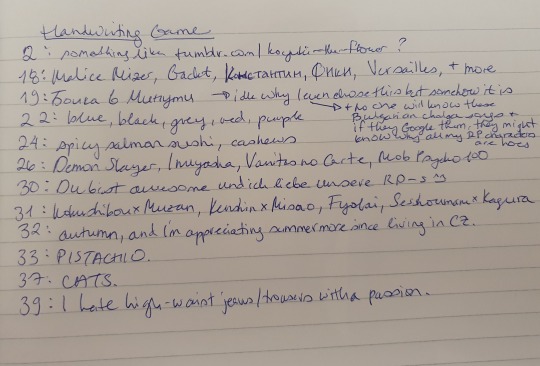 Handwriting Game
2: something like tumblr.com/ko the-flower ?
18: Malice Mizer, Gackt, Константин, Фики, Versailles, + more
19: Болка в Минути → idk why I even chose this but somehow it is
→ + no one will know these
Bulgarian chalga songs +
if they Google them, they might
know why all my RP characters
are hoes
22: blue, black, grey, red, purple
24: spicy salmon sushi, cashews
26: Demon Slayer, Inuyasha, Vanitas no Carte, Mob Psycho 100
30: Du bist awesome und ich liebe unsere RP-s
31: Kokushibou x Muzan, Kenshin x Misao, Fyolai, Sesshoumaru x Kagura
32: autumn, and I'm appreciating summer more since living in CZ.
33: PISTACHIO.
37: CATS.
39: I hate high-waist jeans/trousers with a passion.